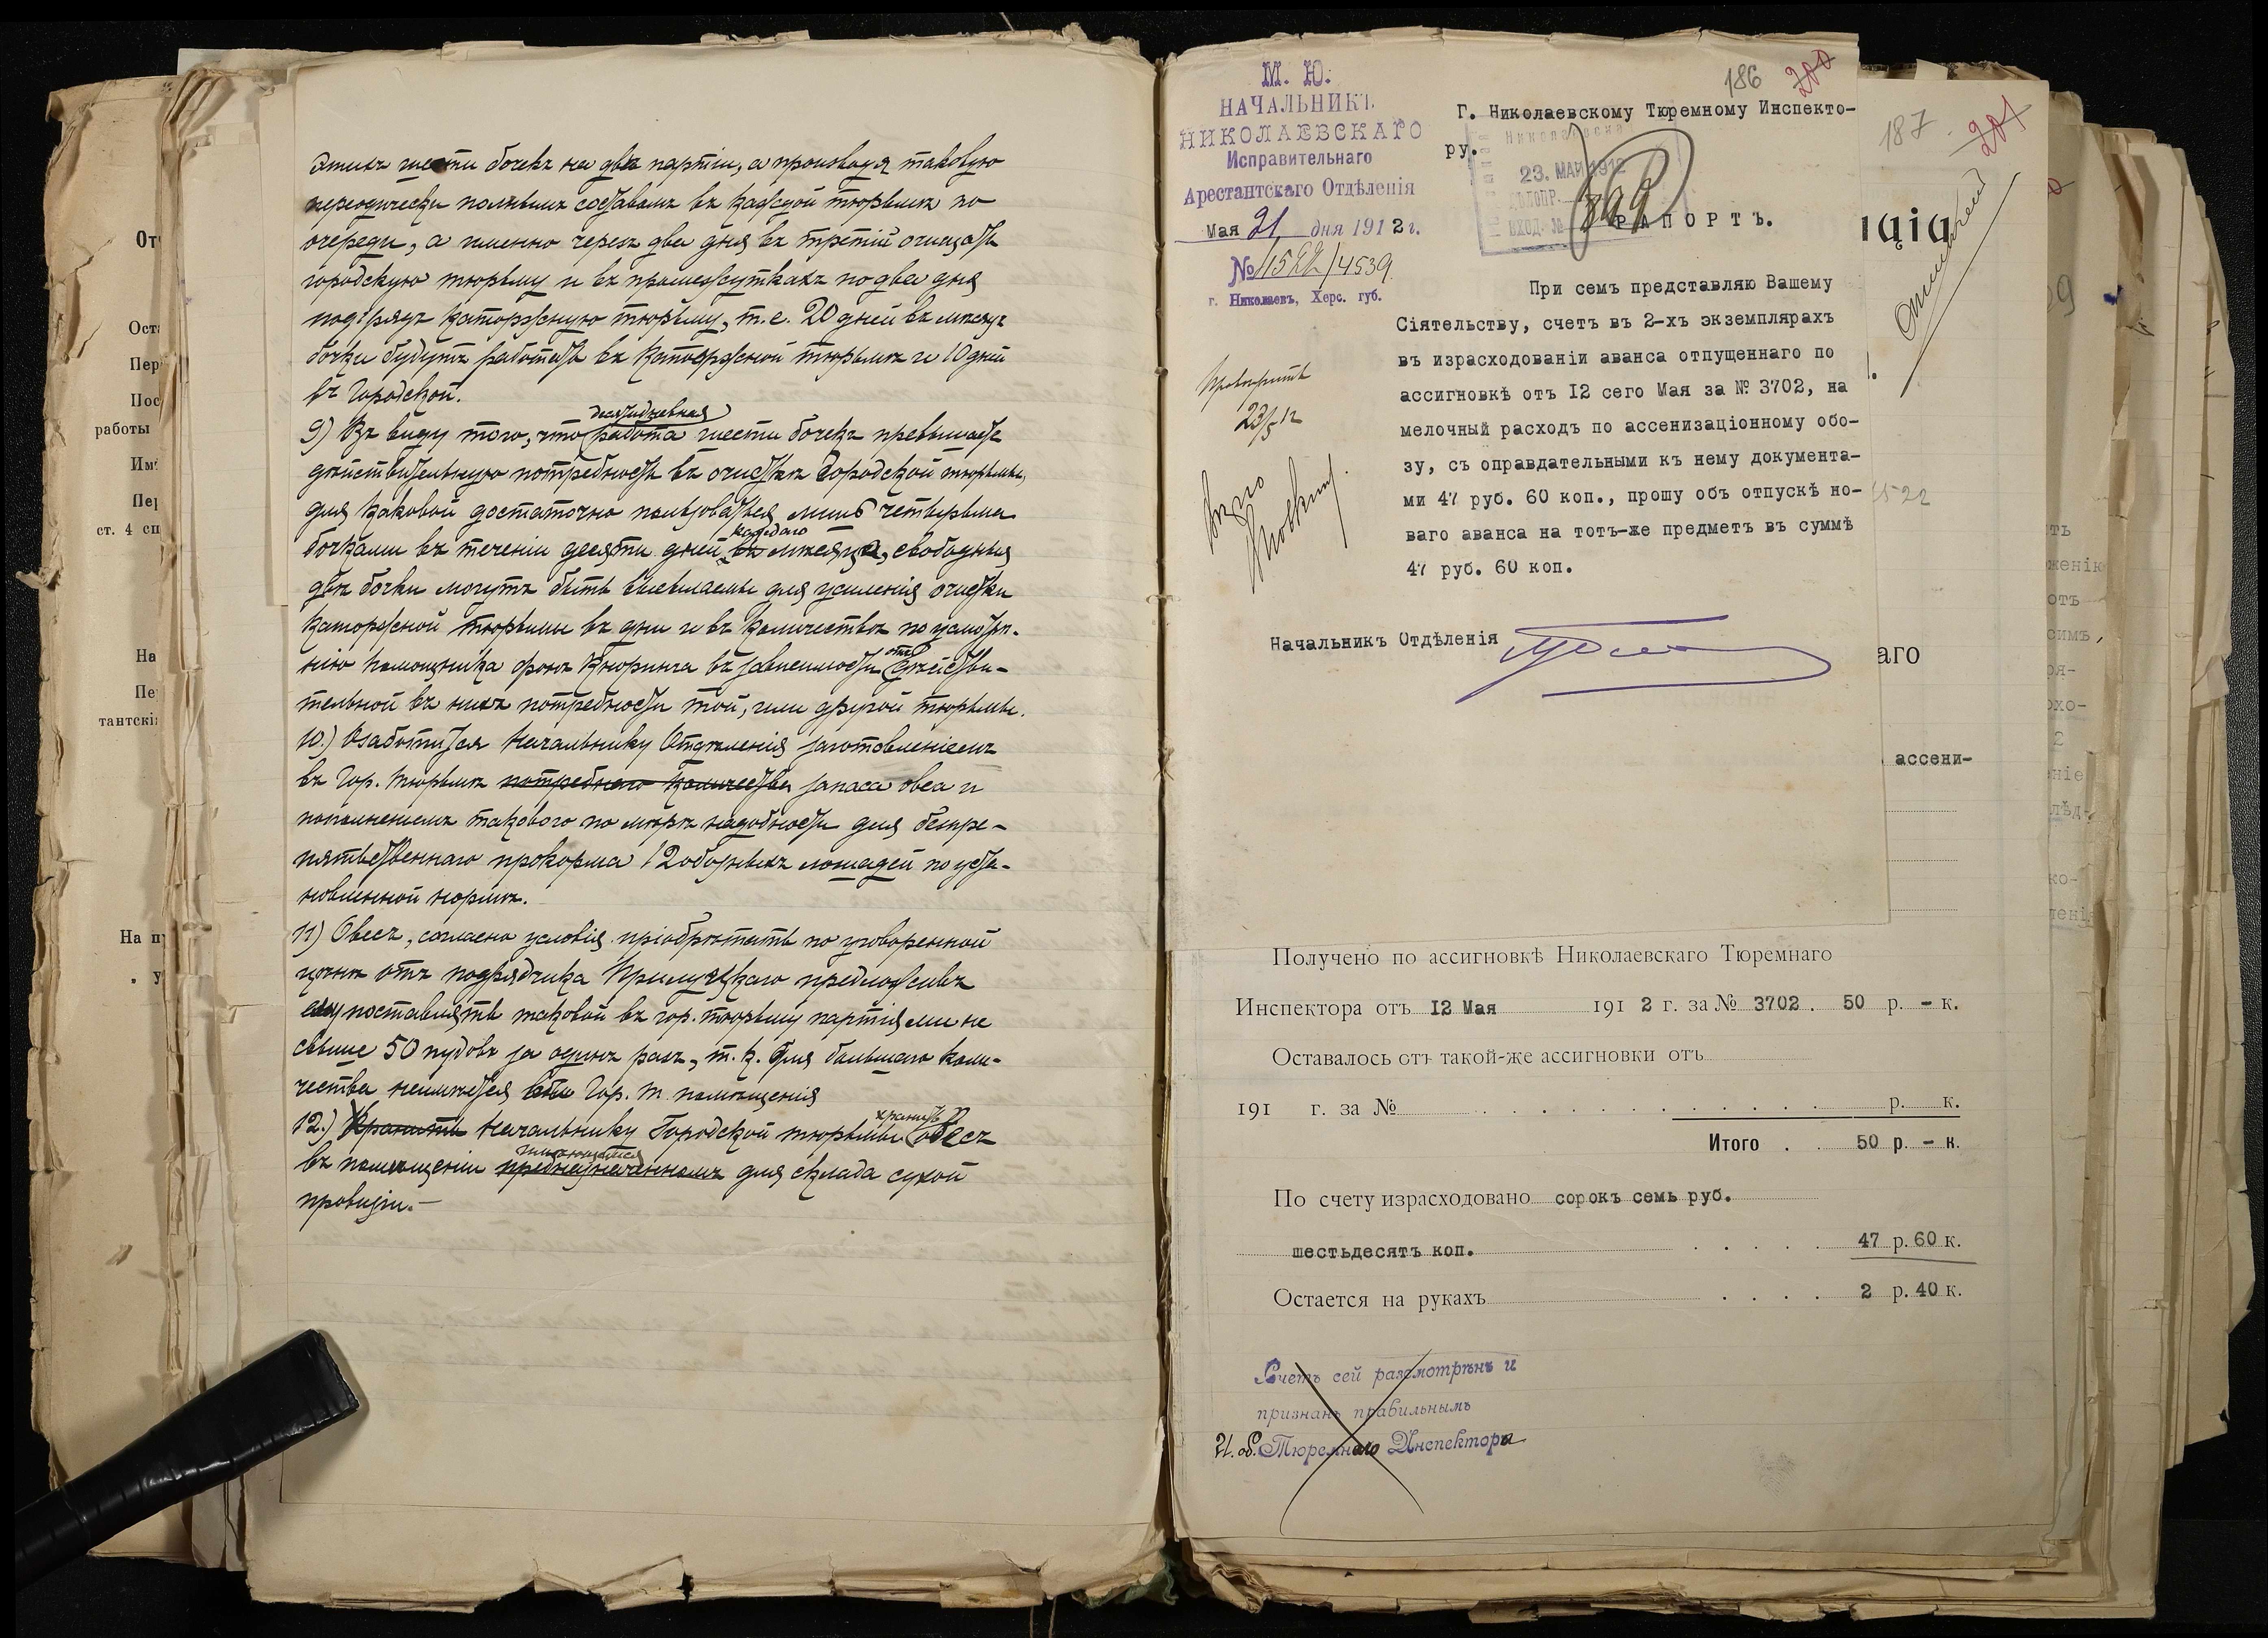 этихъ шести бочекъ на две партіи, а производя таковую
періодически полнымъ составомъ въ каждой тюрьмѣ по
очереди, а именно черезъ два дня въ третій очищать
городскую тюрьму и въ промежуткахъ по два дня
подрядъ каторжную тюрьму, т.е. 20 дней въ мѣсяцъ
бочки будутъ работать въ каторжной тюрьмѣ и 10 дней
въ Городской.
9) Въ виду того, что десятидневная работа шести бочекъ превышаетъ
дѣйствительную потребность въ очисткѣ Городской тюрьмы,
для каковой достаточно пользоваться лишь четырьмя
бочками въ теченіи десяти дней каждаго мѣсяца, свободныя
двѣ бочки могутъ быть высылаемы для усиленія очистки
Каторжной тюрьмы въ дни и въ количествѣ по усмотрѣ-
нію помощника фонъ Кнорринга въ зависимости отъ дѣйстви-
тельной въ нихъ потребности той, или другой тюрьмы.
10.) Озаботиться Начальнику Отдѣленія заготовленіемъ
въ Гор. тюрьмѣ потребнаго количества запаса овса и
пополненіемъ такового по мѣрѣ надобности для безпре-
пятственнаго прокорма 12 обозныхъ лошадей по уста-
новленной нормѣ.
11) Овесъ, согласно условія пріобрѣтать по уговоренной
цѣнѣ отъ подрядчика предложивъ
ему поставлять таковой въ гор. тюрьму партіями не
свыше 50 пудовъ за одинъ разъ, т.к. для большаго коли-
чества неимѣется въ Гор. т. помѣщенія
12.) Хранить Начальнику Городской тюрьмы хранить овесъ
въ помѣщеніи имѣющемся предназначенномъ для склада сухой
провизіи.—
От
Ост
Пер
Пос
работы
Им
Пер
ст. 4 сп
На
Пе
тантскі
На п
у
М. Ю.
НАЧАЛЬНИКЪ
НИКОЛАЕВСКАГО
Исправительнаго
Арестантскаго Отдѣленія
Мая 21 дня 1912 г.
№ 1522/4539
г. Николаевъ, Херс. губ.
Провѣрить
23/5 12
186
200
Г. Николаевскому Тюремному Инспекто-
ру.
23. МАЙ 1912
ВХОД. №
РАПОРТЪ.
При семъ представляю Вашему
Сіятельству, счетъ въ 2-хъ экземплярахъ
въ израсходованіи аванса отпущеннаго по
ассигновкѣ отъ I2 сего Мая за № 3702, на
мелочный расходъ по ассенизаціонному обо-
зу, съ оправдательными къ нему документа-
ми 47 руб. 60 коп., прошу объ отпускѣ но-
ваго аванса на тотъ-же предметъ въ суммѣ
47 руб. 60 коп.
Начальникъ Отдѣленія
187
201
ція
1522
аго
ассени-
Получено по ассигновкѣ Николаевскаго Тюремнаго
Инспектора отъ I2 Мая 191 2 г. за № 3702. 50 р. - к.
Оставалось отъ такой-же ассигновки отъ
191 г. за № р. к.
Итого . . 50 р. - к.
По счету израсходовано сорокъ семь руб.
шестьдесятъ коп. 47 р. 60 к.
Остается на рукахъ 2 р. 40 к.
Счетъ сей разсмотрѣнъ и
признанъ правильнымъ
И. об. Тюремнаго Инспектора